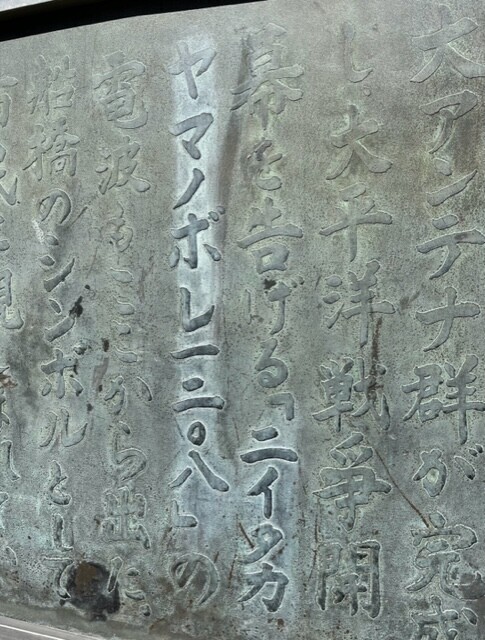 大アンテナ群が完成
し、太平洋戦争開
幕を告げる「ニイタカ
ヤマノボレ一二〇八」の
電波もここから出た。
船橋のシンボルとして
市民に親しまれ